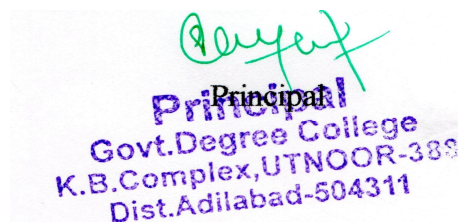 Principal
Principal
Govt.Degree College
K.B.Complex,UTNOOR-388
Dist.Adilabad-504311